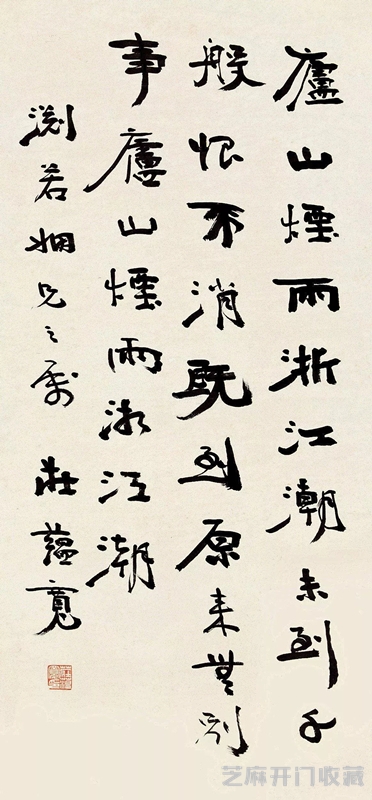 廬山煙雨浙江潮未到千
般恨不消既到原来無別
事廬山煙雨浙江潮
若姻兄之属 莊蘊寬
芝麻开门收藏